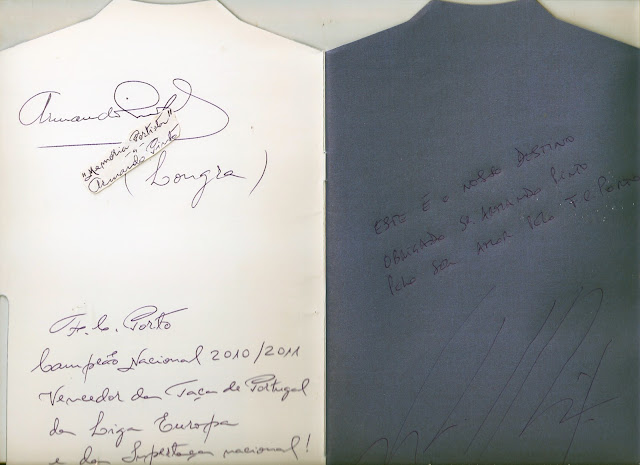 Armando Pinto
"Memória Portista"
Armando Pinto
(Longra)
F. C. Porto
Campeão Nacional 2010/2011
Vencedor da Taça de Portugal
da Liga Europa
e da Supertaça nacional!
ESTE É O NOSSO DESTINO
OBRIGADO SR. ARMANDO PINTO
PELO SEU AMOR PELO F.C. PORTO